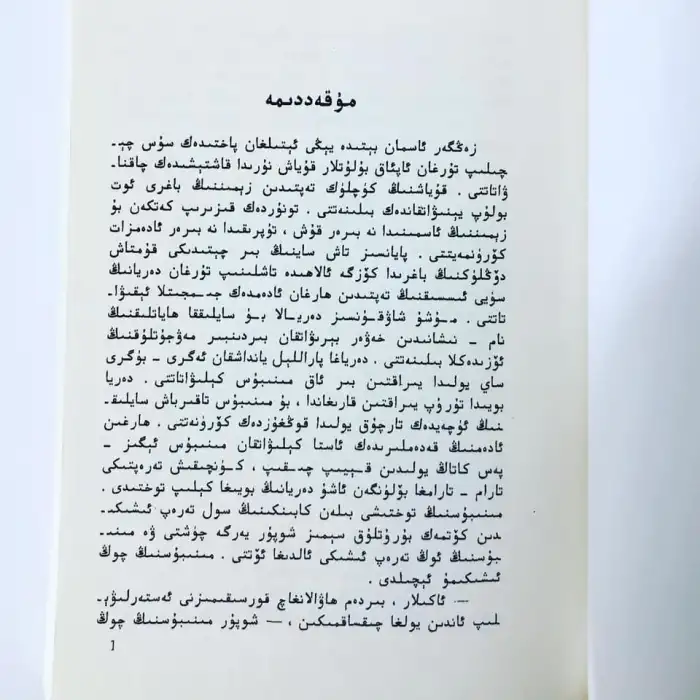 مۇقەددىمە
زەڭگەر ئاسمان بېتىدە يېڭى ئېتىلغان پاختىدەك سۇس چې-
چىلىپ تۇرغان ئاپئاق بۇلۇتلار قۇياش نۇرىدا قاشتېشىدەك چاقنا-
ۋاتاتتى . قۇياشنىڭ كۈچلۈك تەپتىدىن زېمىننىڭ باغرى ئوت
بولۇپ يېنىۋاتقاندەك بىلىنەتتى . تونۇردەك قىزىرىپ كەتكەن بۇ
زېمىننىڭ ئاسمىنىدا نە بىرەر قۇش ، تۇپرىقىدا نە بىرەر ئادەمزات
كۆرۈنمەيتتى . پايانسىز تاش ساينىڭ بىر چېتىدىكى قۇمتاش
دۆڭلۈكنىڭ باغرىدا كۆزگە ئالاھىدە تاشلىنىپ تۇرغان دەريانىڭ
سۈيى ئىسسىقنىڭ تەپتىدىن ھارغان ئادەمدەك جىمجىتلا ئېقىۋا-
تاتتى . مۇشۇ شاۋقۇنسىز دەريالا بۇ سايلىققا ھاياتلىقنىڭ
نام - نىشانىدىن خەۋەر بېرىۋاتقان بىردىنبىر مەۋجۇتلۇقنىڭ
ئۆزىدەكلا بىلىنەتتى . دەرياغا پاراللېل يانداشقان ئەگرى - بۈگرى
ساي يولىدا يىراقتىن بىر ئاق مىنىبۇس كېلىۋاتاتتى . دەريا
بويىدا تۇرۇپ يىراقتىن قارىغاندا ، بۇ مىنىبۇس تاقىرباش سايلىق-
نىڭ ئۈچەيدەك تارچۇق يولىدا قوڭغۇزدەك كۆرۈنەتتى . ھارغىن
ئادەمنىڭ قەدەملىرىدەك ئاستا كېلىۋاتقان مىنىبۇس ئېگىز -
پەس كاتاڭ يولدىن قىيىپ چىقىپ ، كۈنچىقىش تەرەپتىكى
تارام - تارامغا بۆلۈنگەن ئاشۇ دەريانىڭ بويىغا كېلىپ توختىدى .
مىنىبۇسنىڭ توختىشى بىلەن كابىنكىنىڭ سول تەرەپ ئىشىكى-
دىن كۆتمەك بۇرۇتلۇق سېمىز شوپۇر يەرگە چۈشتى ۋە مىنى-
بۇسنىڭ ئوڭ تەرەپ ئىشىكى ئالدىغا ئۆتتى . مىنىبۇسنىڭ چوڭ
ئىشىكىمۇ ئېچىلدى .
— ئاكىلار ، بىردەم ھاۋالانغاچ قورسىقىمىزنى ئەستەرلىۋې-
لىپ ئاندىن يولغا چىقساقمىكىن ، — شوپۇر مىنىبۇسنىڭ چوڭ
1